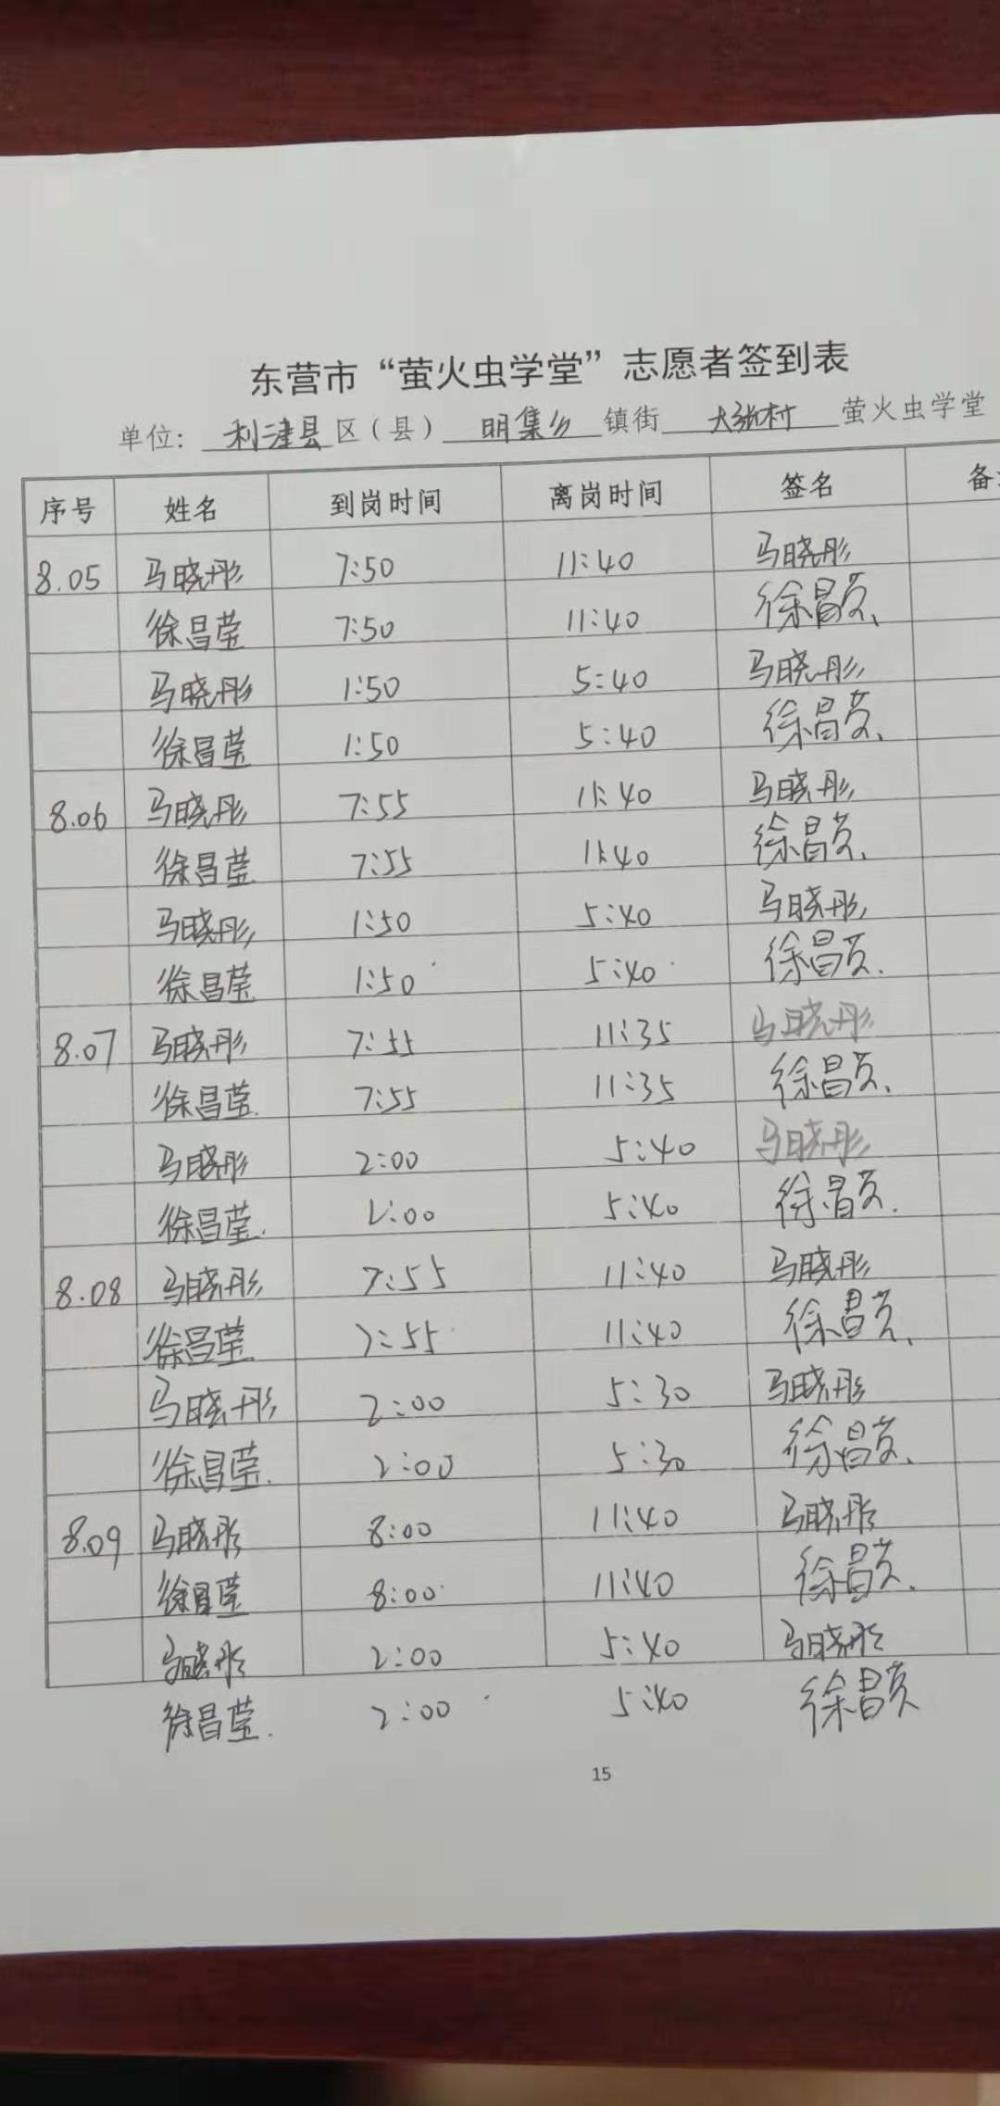 东营市“萤火虫学堂”志愿者签到表
单位： 利津县 区（县） 明集乡 镇街 大张村 萤火虫学堂
序号 姓名 到岗时间 离岗时间 签名 备
8.05 马晓彤 7:50 11:40 马晓彤
徐昌莹 7:50 11:40 徐昌莹
马晓彤 1:50 5:40 马晓彤
徐昌莹 1:50 5:40 徐昌莹
8.06 马晓彤 7:55 11:40 马晓彤
徐昌莹 7:55 11:40 徐昌莹
马晓彤 1:50 5:40 马晓彤
徐昌莹 1:50 5:40 徐昌莹
8.07 马晓彤 7:55 11:35 马晓彤
徐昌莹 7:55 11:35 徐昌莹
马晓彤 2:00 5:40 马晓彤
徐昌莹 2:00 5:40 徐昌莹
8.08 马晓彤 7:55 11:40 马晓彤
徐昌莹 7:55 11:40 徐昌莹
马晓彤 2:00 5:30 马晓彤
徐昌莹 2:00 5:30 徐昌莹
8.09 马晓彤 8:00 11:40 马晓彤
徐昌莹 8:00 11:40 徐昌莹
马晓彤 2:00 5:40 马晓彤
徐昌莹 2:00 5:40 徐昌莹
15